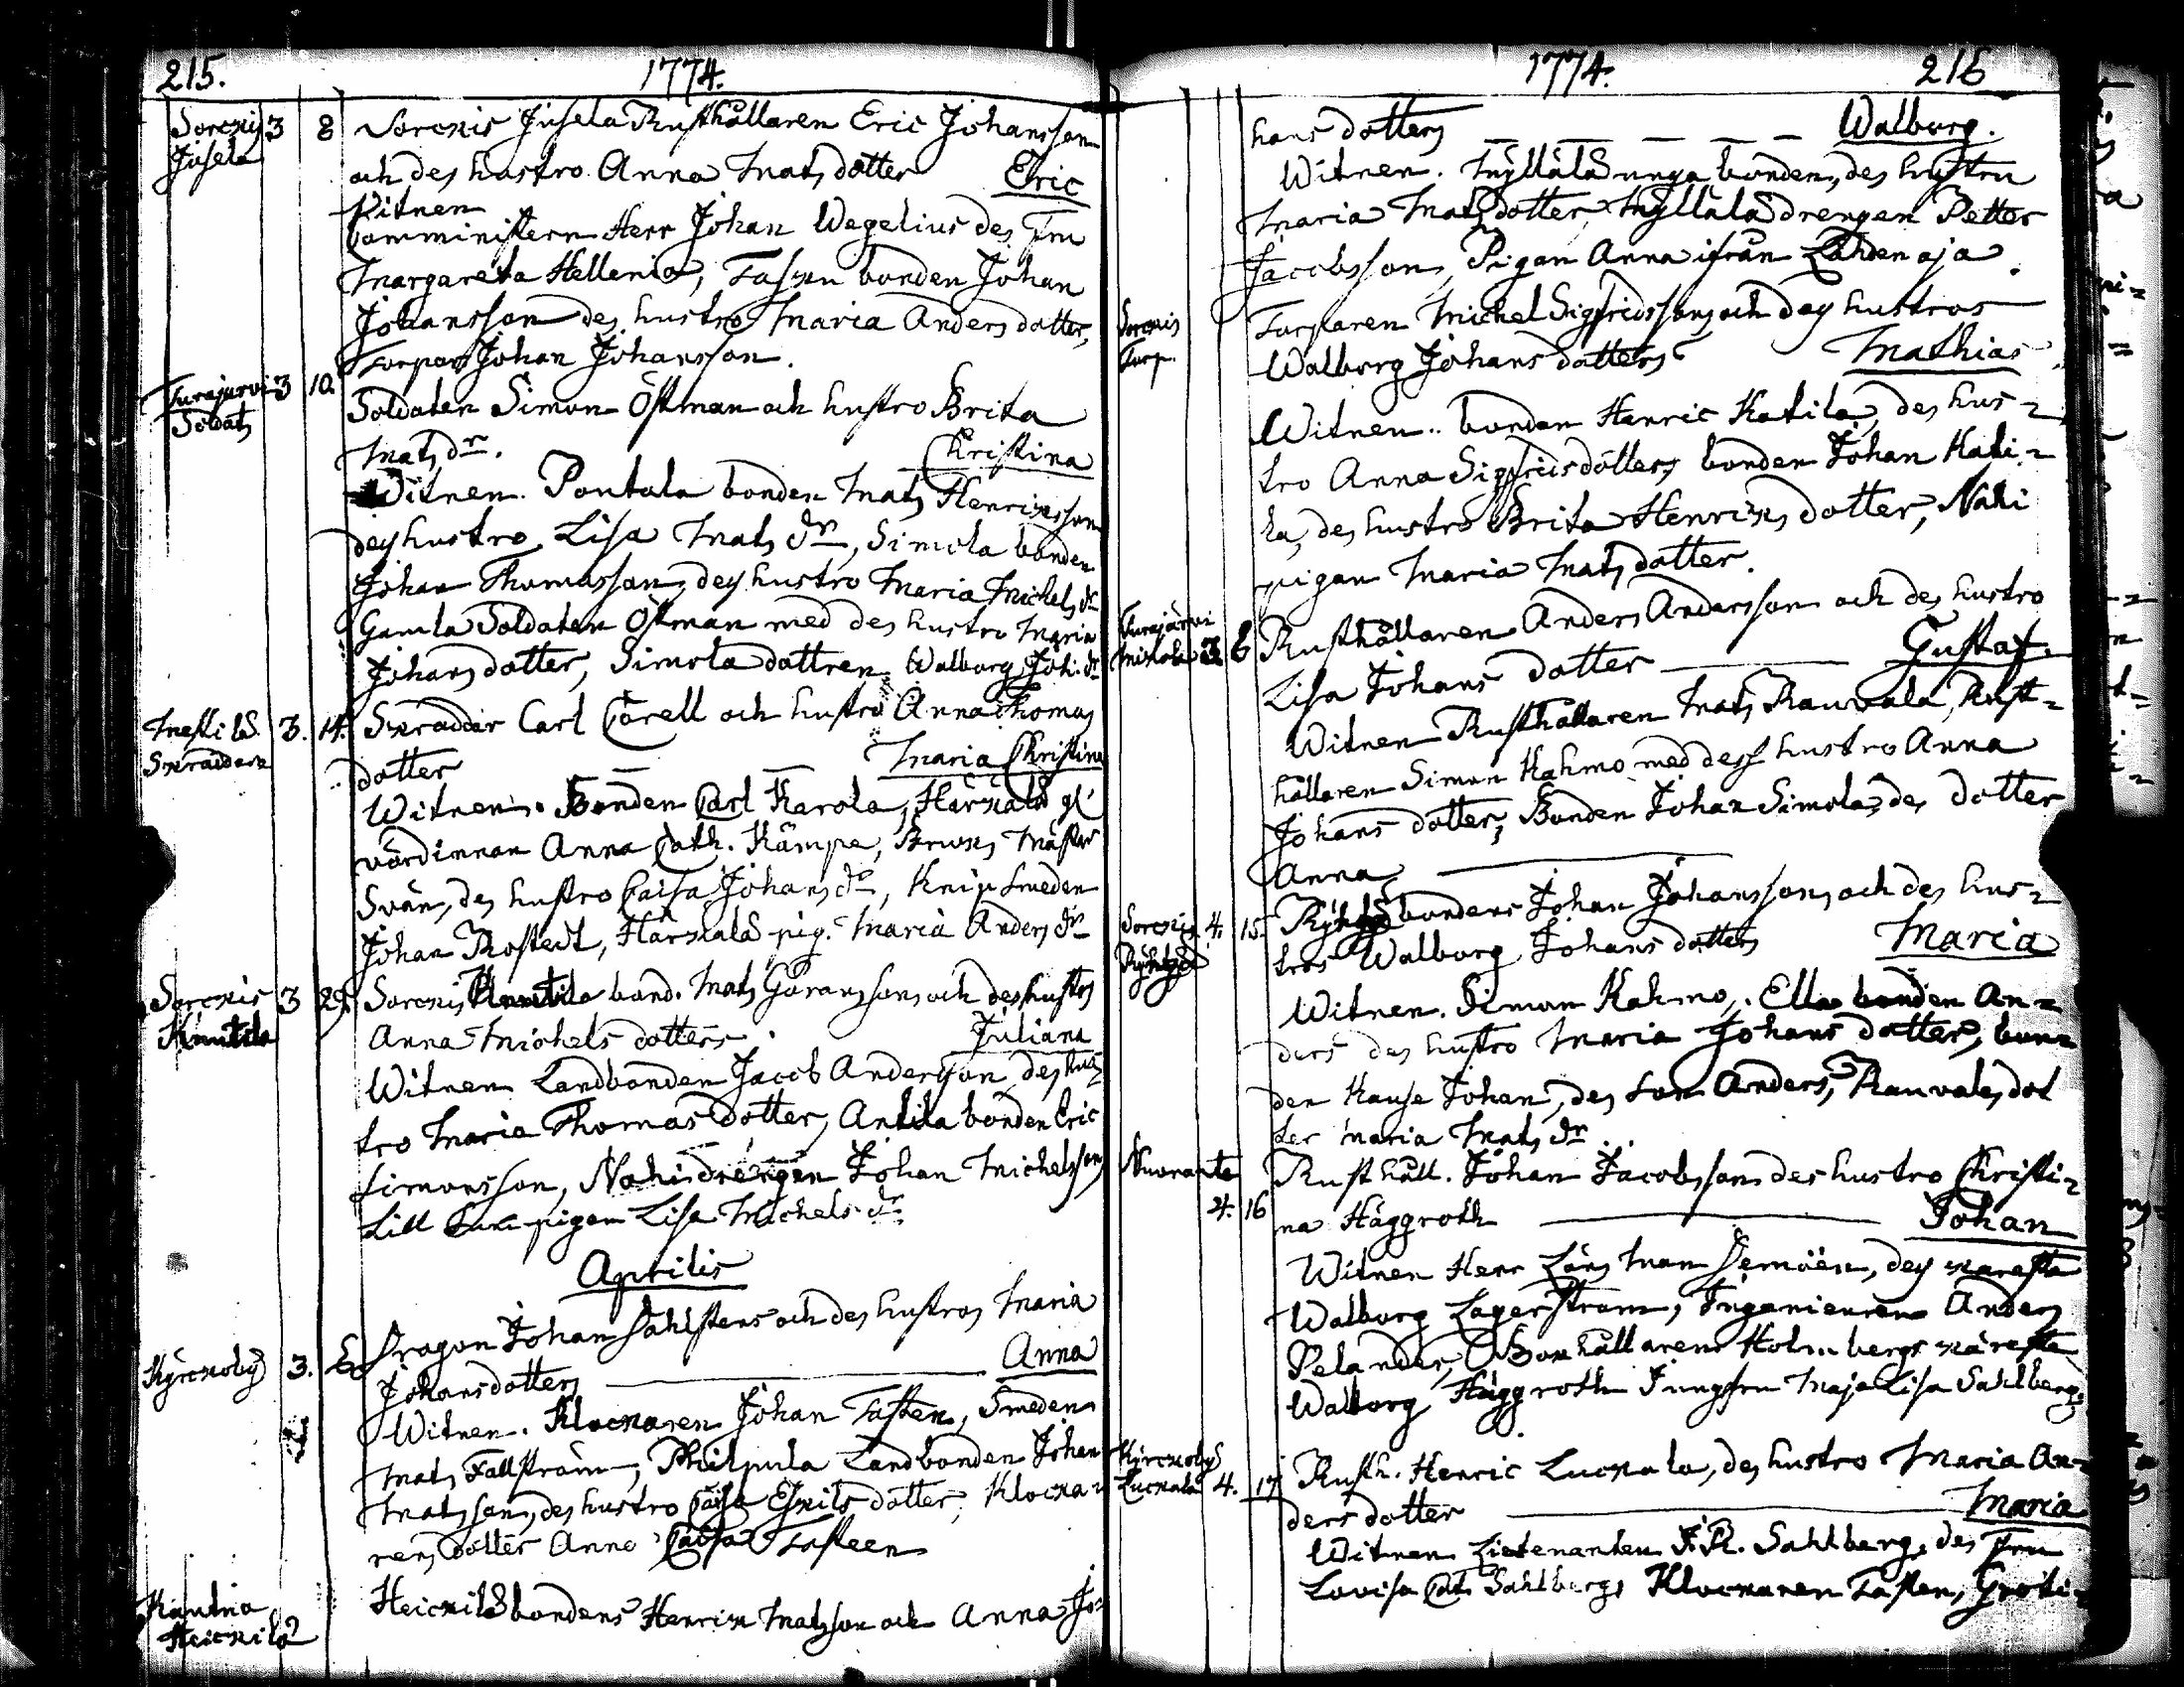 215. 1774.
Sorckis Jusela 3 8 Sorckis Jusela Rusthållaren Eric Johansson
och des hustro Anna Matsdotter Eric
Witnen
Comministern Herr Johan Wegelius des Fru
Margareta Hellenia, bonden Johan
Johansson des hustro Maria Andersdotter,
Torpar Johan Johansson.
Turajärvi Soldat 3 10. Soldaten Simon Östman och hustro Brita
Mats dr. Christina
Witnen. Pontola bonden Mats Henricsson
des hustro Lisa Mats dr, Simola bonden
Johan Thomasson, des hustro Maria Michels dr
Gamla Soldaten Östman med des hustro Maria
Johansdotter, Simola dottren Walborg Joh. dr
Skräddare 3. 14. Skräddar Carl Corell och hustro Anna Thomas
dotter Maria Christina
Witnen. Bonden Carl Karola, Härkälä
värdinnan Anna Cath. Kämpe, Bruks Mäster
Svän, des hustro Caisa Johans dr, Knip smeden
Johan Rostedt, Härkälä pig. Maria Anders dr
Sorckis Knutila 3 29. Sorckis Knutila bond. Mats Göransson och des hustro
Anna Michels dotters Juliana
Witnen Landbonden Jacob Andersson, des hus
tro Maria Thomas dotter, Antila bonden Eric
Simonsson, Nahi drengen Johan Michelsson
Lill pigan Lisa Michels dr
Aprilis
Kyrckoby 3. Dragon Johan Sahlstens och des hustros Maria
Johansdotters Anna
Witnen. Klockaren Johan Tasten, Smeden
Mats Fallström, Philpula Landbonden Johan
Matsson, des hustro Caisa Eskils dotter, Klocka-
rens dotter Anna Caisa Tasteen
Kautua Heickilä Heickilä bondens Henric Matsson och Anna Jo-
1774. 216
hans dotters Walborg.
Witnen. Myllälä unga bonden, des hustru
Maria Mats dotter, Myllälä drengen Petter
Jacobsson, Pigan Anna ifrån Lähdenoja.
Sorckis Torp. Torparen Michel Sigfridsson och des hustros
Walborg Johans dotters Mathias
Witnen.. bonden Henric Katila, des hus-
tro Anna Sigfridsdotter, bonden Johan Kati-
la, des hustro Brita Henrics dotter, Nahi
pigan Maria Mats dotter.
Turajärvi 6 Rusthållaren Anders Andersson och des hustro
Lisa Johans dotter Gustaf.
Witnen Rusthållaren Mats Rauvala, Rust-
hållaren Simon Kahmo med dess hustro Anna
Johans dotter, Bonden Johan Simola, des dotter
Anna
Sorckis 4. 15. bondens Johan Johansson och des hus-
tros Walborg Johans dotters Maria
Witnen. Simon Kahmo, Ella bonden An-
ders des hustro Maria Johans dotter, bon-
den Kause Johan, des son Anders, Rauvala dot
ter Maria Mats dr..
4. 16 Rusthåll. Johan Jacobsson des hustro Christi-
na Häggroth Johan
Witnen Herr Läns Man, des käresta
Walborg Lagerström, Ingenieuren Anders
Pelander, Bokhållaren Holmbergs käresta
Walborg Häggroth Jungfru Maja Lisa Sahlberg
Kyrckoby Luckala 4. 17 Rusth. Henric Luckala, des hustro Maria An-
ders dotter Maria
Witnen Lieutenanten Sahlberg, des Fru
Lovisa Cat. Sahlbergs Klockaren Tasten,